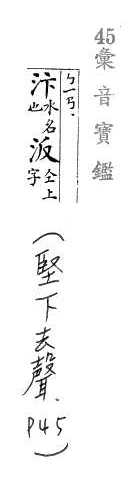 45 彙音寶鑑
ㄅㄧㄢ.
汴水名也汳仝上字
(堅下去聲、P45)